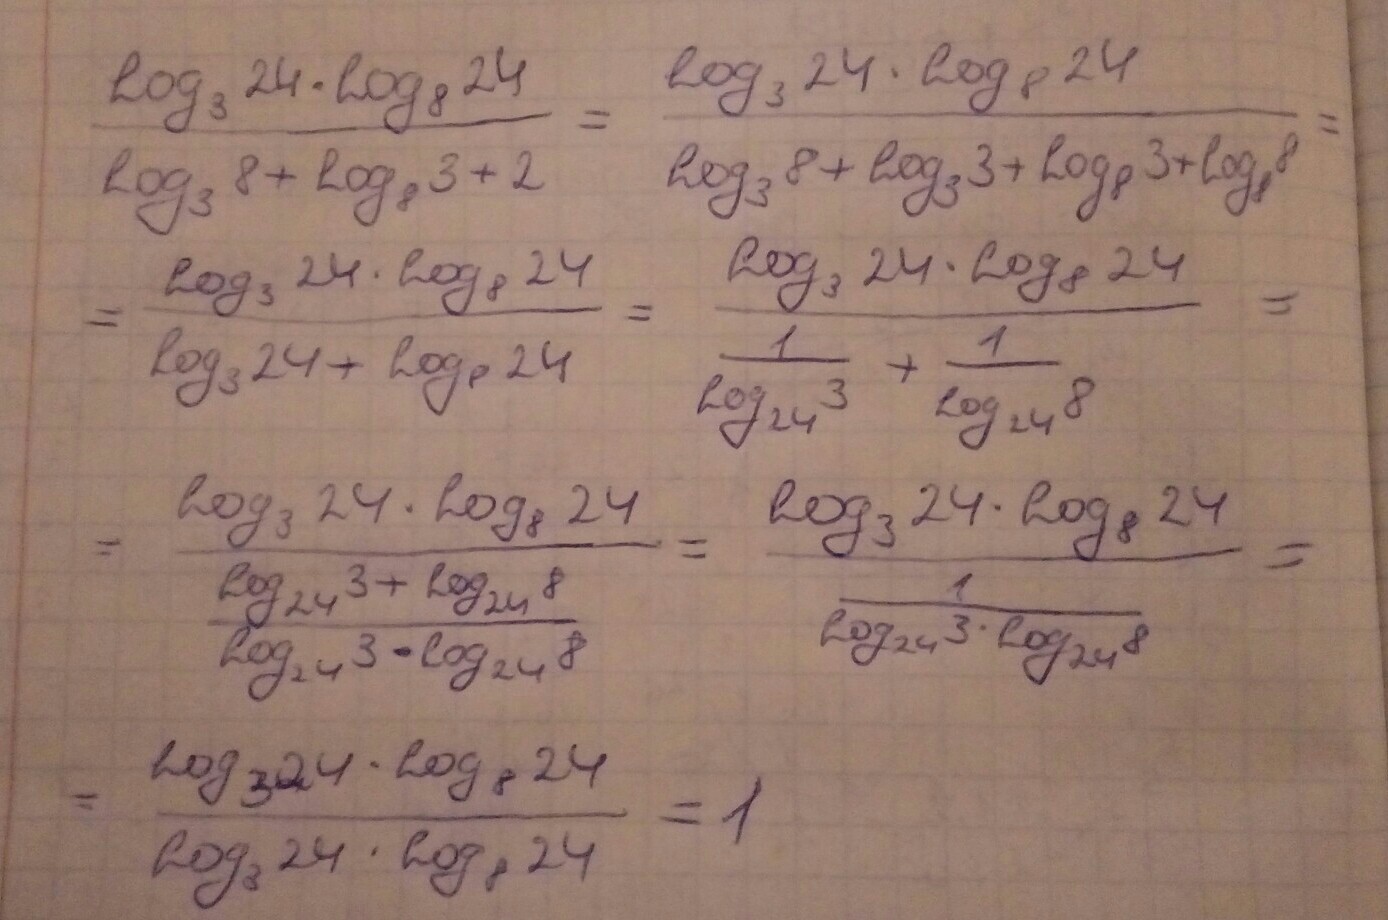 log₃ 24 · log₈ 24 / log₃ 8 + log₈ 3 + 2 = log₃ 24 · log₈ 24 / log₃ 8 + log₃ 3 + log₈ 3 + log₈ 8 =
= log₃ 24 · log₈ 24 / log₃ 24 + log₈ 24 = log₃ 24 · log₈ 24 / (1 / log₂₄ 3 + 1 / log₂₄ 8) =
= log₃ 24 · log₈ 24 / (log₂₄ 3 + log₂₄ 8 / log₂₄ 3 · log₂₄ 8) = log₃ 24 · log₈ 24 / (1 / log₂₄ 3 · log₂₄ 8) =
= log₃ 24 · log₈ 24 / log₃ 24 · log₈ 24 = 1